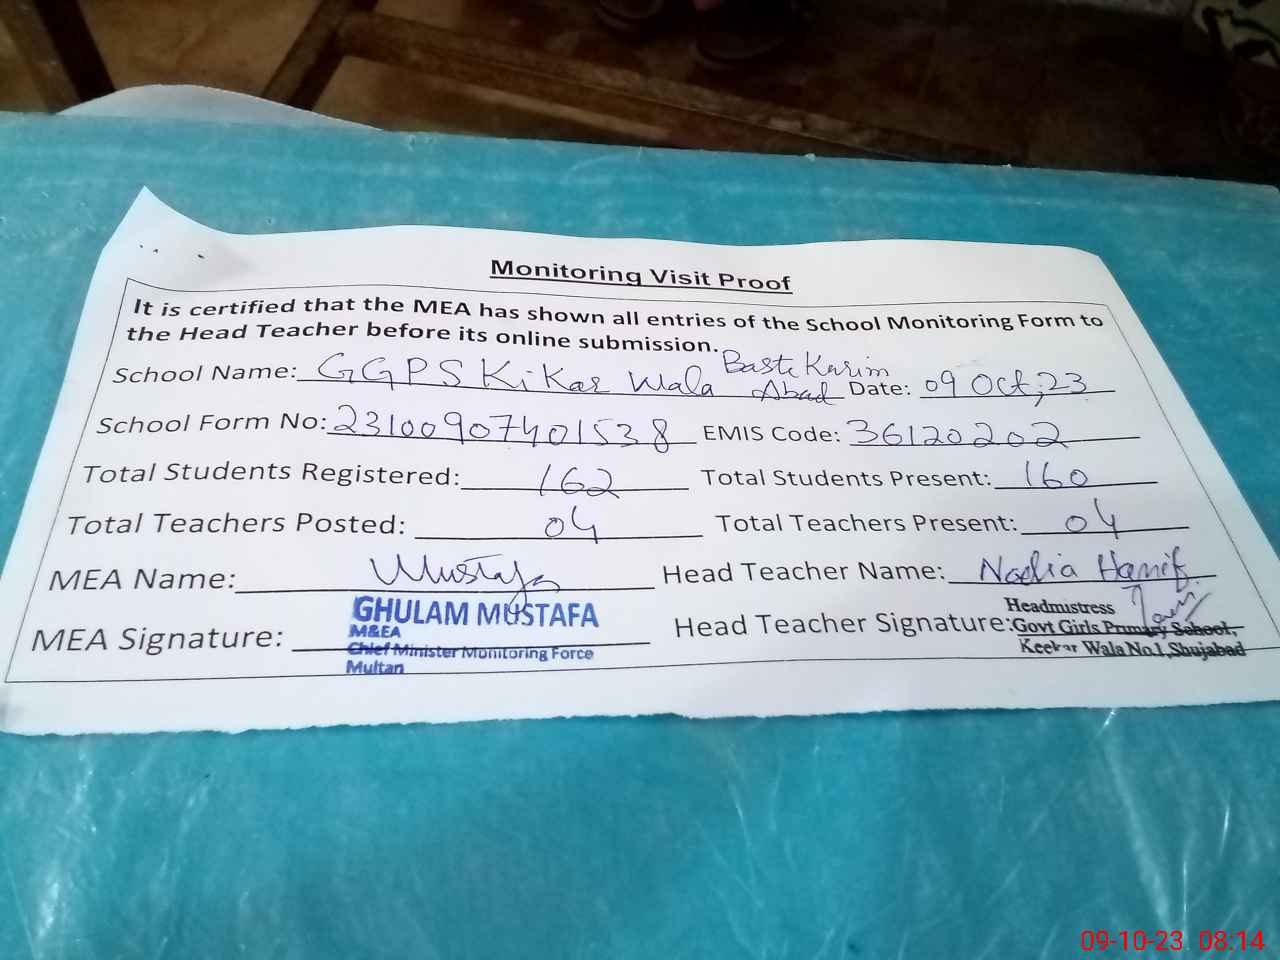 Monitoring Visit Proof
It is certified that the MEA has shown all entries of the School Monitoring Form to
the Head Teacher before its online submission.
School Name: GGPS Kikar Wala Basti Karim Abad Date: 09 Oct, 23
School Form No: 23100907401538 EMIS Code: 36120202
Total Students Registered: 162 Total Students Present: 160
Total Teachers Posted: 04 Total Teachers Present: 04
MEA Name: Mustafa Head Teacher Name: Nadia Hanif
MEA Signature: Head Teacher Signature:
GHULAM MUSTAFA
M&EA
Chief Minister Monitoring Force
Multan
Headmistress
Govt Girls Primary School,
Keekar Wala No.1, Shujabad
09-10-23 08:14